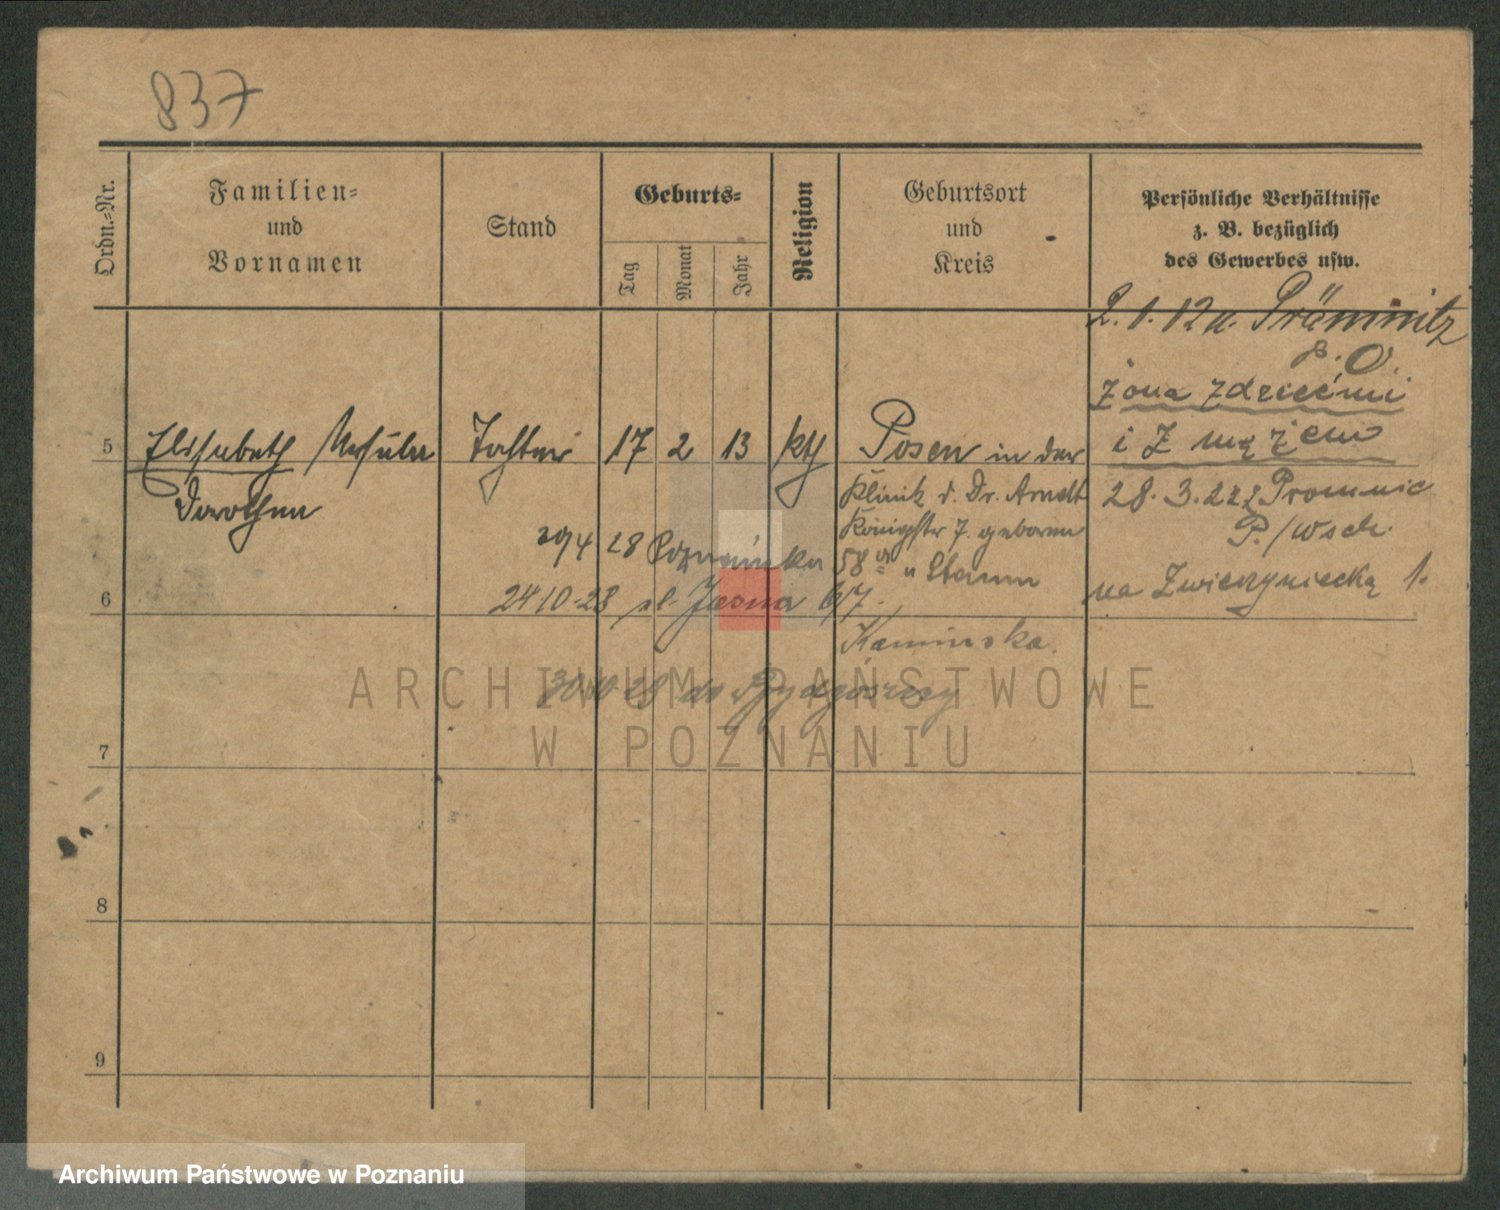 837
Ordn.=Nr.
Familien=
und
Vornamen
Stand
Geburts=
Tag
Monat
Jahr
Religion
Geburtsort
und
Kreis
Persönliche Verhältnisse
z. B. bezüglich
des Gewerbes usw.
2. 1. 12 Prämnitz
żona z dziećmi
5 Elisabeth Ursula Tochter 17 2 13 kth Posen in der
i z mężem
Dorothea
Klinik d. Dr. Arndt
28. 3. Promnic
Königstr 7. geboren
P./Wsch.
28
58
na Zwierzyniecką 1.
6
24 10 28 ul. Jasna 6/7.
Kaminska.
do Bydgoszczy
ARCHIWUM PAŃSTWOWE
W POZNANIU
7
8
9
Archiwum Państwowe w Poznaniu